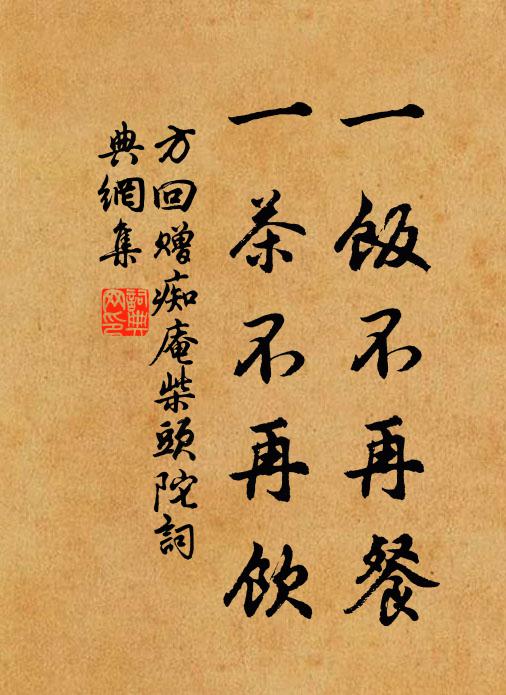 一飯不再餐
一茶不再飲
方回赠痴庵柴頭陀詞
典網集
詞典网印